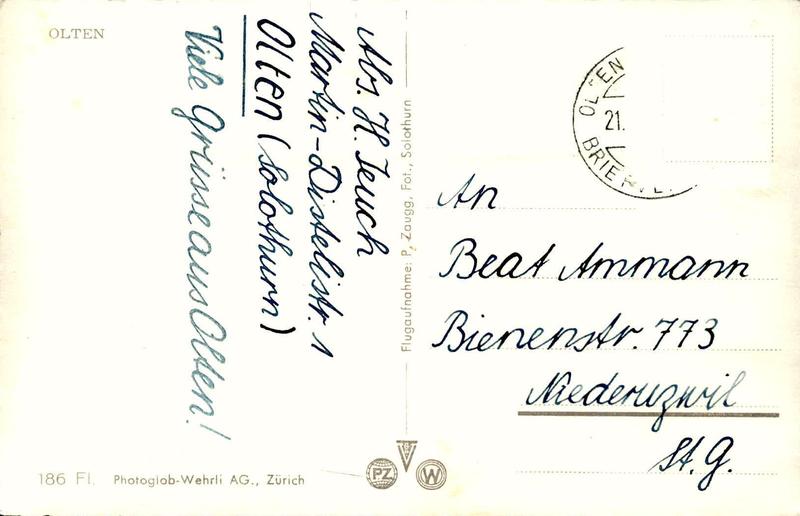 OLTEN
Abs. H. Jeuch
Martin-Distelistr. 1
Olten (Solothurn)
Viele Grüsse aus Olten!
Flugaufnahme: P. Zaugg, Fot., Solothurn
OLTEN
21.
BRIE
An
Beat Ammann
Bienenstr. 773
Niederuzwil
St. G.
186 Fl. Photoglob-Wehrli AG., Zürich
PZ
W